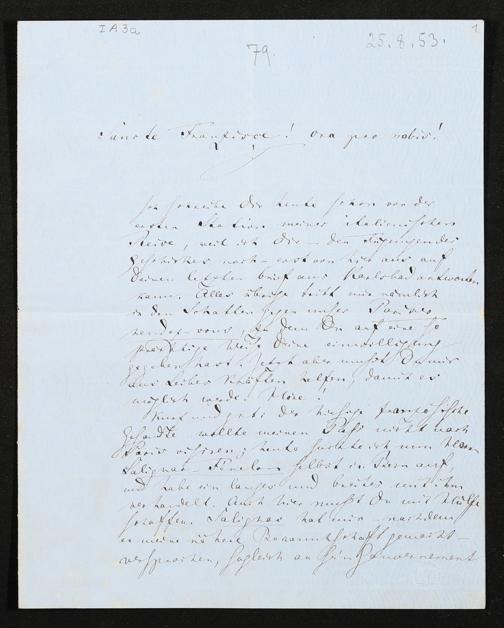 I A 3a
1
79.
25.8.53.
Sancte Franzisce! ora pro nobis!
Ich schreibe Dir heute schon von der
ersten Station meiner italienischen
Reise, weil ich Dir – den
noch erst von hier aus auf
Deinen letzten Brief aus Karlsbad antworten
kann. Alles übrige tritt mir nämlich
in den Schatten gegen unser Pariser
rendez-vous, zu dem Du auf eine so
prächtige Weise Deine Einwilligung
gegeben hast. Jetzt aber musst Du mir
aus Leibes Kräften helfen, damit es
möglich werden könne!
Kurz und gut: der hiesige französische
Gesandte wollte meinen Pass nicht nach
Paris visiren; heute suchte ich nun Herrn
Salignac-Fénelon selbst in Bern auf,
und habe ein langes und breites mit ihm
verhandelt. Auch hier musst Du mir Hülfe
schaffen. Salignac hat mir – nachdem
er meine nähere Bekanntschaft gemacht –
versprochen, sogleich an sein Gouvernement